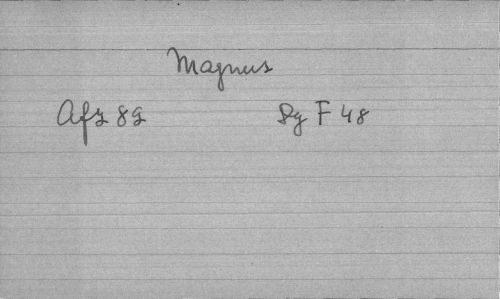 Magnus
Afz 89 Dg F 48